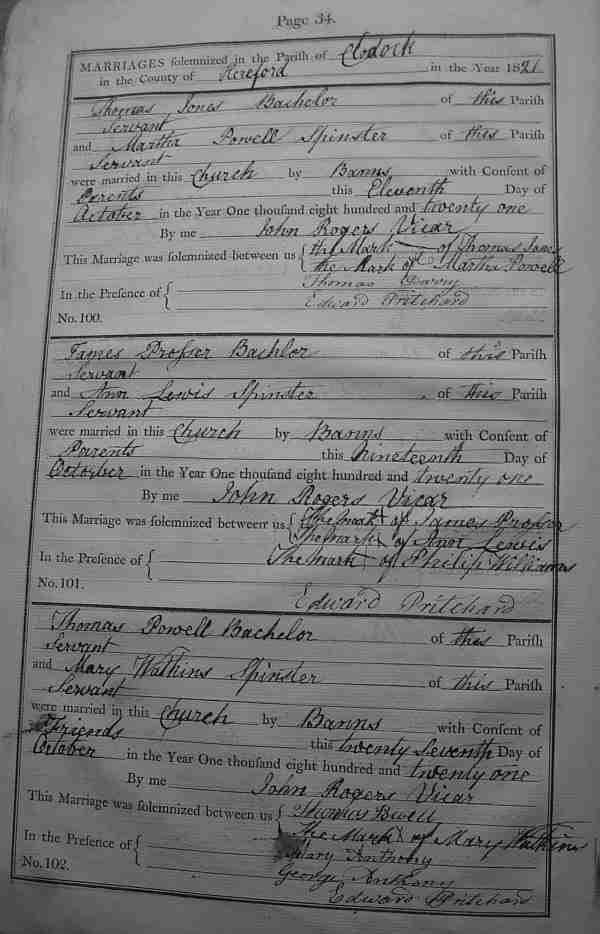 Page 34.
MARRIAGES solemnized in the Parish of Clodock
in the County of Hereford in the Year 1821
Thomas Jones Bachelor of this Parish
Servant
and Martha Powell Spinster of this Parish
Servant
were married in this Church by Banns with Consent of
Parents this Eleventh Day of
October in the Year One thousand eight hundred and twenty one
By me John Rogers Vicar
This Marriage was solemnized between us { the Mark of Thomas Jones
the Mark of Martha Powell
In the Presence of { Thomas
Edward Pritchard
No. 100.
James Prosser Bachlor of this Parish
Servant
and Ann Lewis Spinster of this Parish
Servant
were married in this Church by Banns with Consent of
Parents this Nineteenth Day of
Octorber in the Year One thousand eight hundred and twenty one
By me John Rogers Vicar
This Marriage was solemnized between us { The mark of James Prosser
The mark of Ann Lewis
In the Presence of { The mark of Philip Williams
No. 101.
Edward Pritchard
Thomas Powell Bachelor of this Parish
Servant
and Mary Watkins Spinster of this Parish
Servant
were married in this Church by Banns with Consent of
Friends this twenty Seventh Day of
October in the Year One thousand eight hundred and twenty one
By me John Rogers Vicar
This Marriage was solemnized between us { Thomas
The Mark of Mary Watkins
In the Presence of { Mary Anthony
George Anthony
No. 102. Edward Pritchard